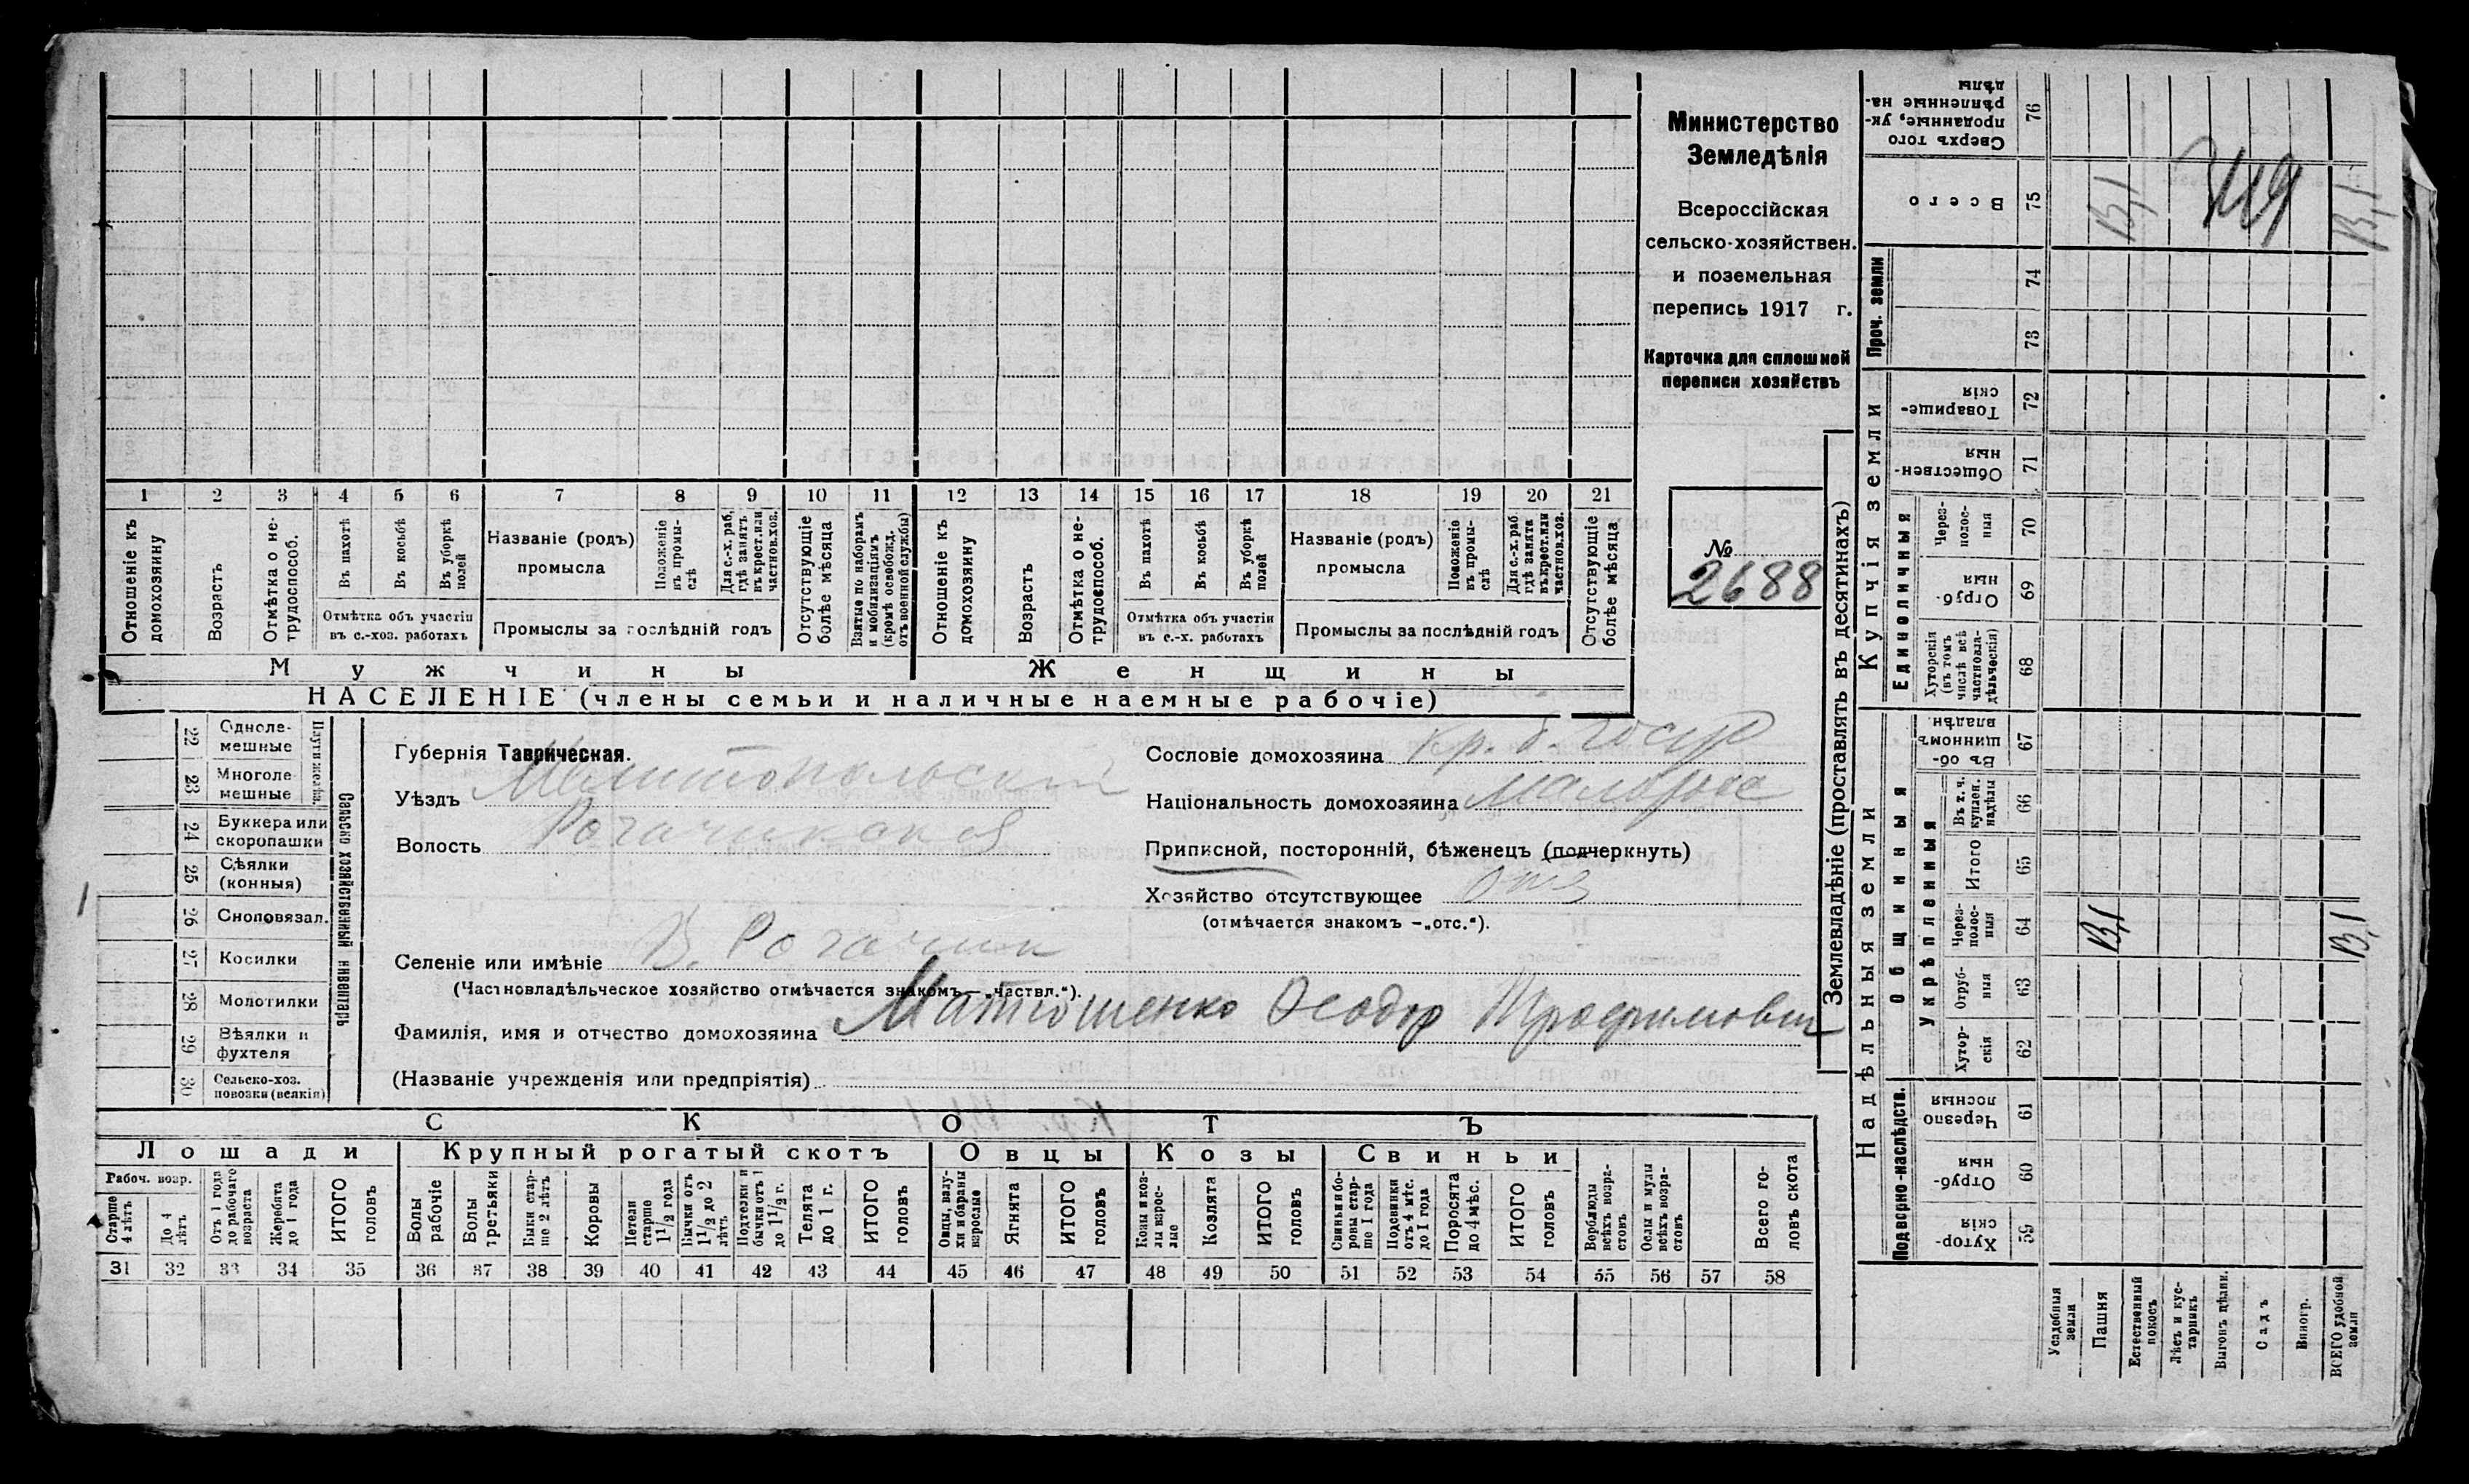 Министерство
Земледѣлія
Всероссійская
сельско-хозяйствен.
и поземельная
перепись 1917 г.
Карточка для сплошной
переписи хозяйствъ
№
2688
1 2 3 4 5 6 7 8 9 10 11 12 13 14 15 16 17 18 19 20 21
Отношеніе къ домохозяину
Возрастъ
Отмѣтка о нетрудоспособ.
Въ пахотѣ
Въ косьбѣ
Въ уборкѣ полей
Отмѣтка объ участіи
въ с.-хоз. работахъ
Названіе (родъ)
промысла
Положеніе въ промыслѣ
Для с.-х. раб., гдѣ занятъ въ крест. или частнов. хоз.
Промыслы за послѣдній годъ
Отсутствующіе болѣе мѣсяца
Взятые по наборамъ и мобилизаціямъ (кромѣ освобожд. отъ военной службы)
Отношеніе къ домохозяину
Возрастъ
Отмѣтка о нетрудоспособ.
Въ пахотѣ
Въ косьбѣ
Въ уборкѣ полей
Отмѣтка объ участіи
въ с.-х. работахъ
Названіе (родъ)
промысла
Положеніе въ промыслѣ
Для с.-х. раб. гдѣ занята въ крест. или частнов. хоз.
Промыслы за послѣдній годъ
Отсутствующіе болѣе мѣсяца
Мужчины
Женщины
НАСЕЛЕНІЕ (члены семьи и наличные наемные рабочіе)
22 Однолемешные
23 Многолемешные
24 Буккера или скоропашки
25 Сѣялки (конныя)
26 Сноповязал.
27 Косилки
28 Молотилки
29 Вѣялки и фухтеля
30 Сельско-хоз. повозки (великія)
Сельско хозяйственный инвентарь
Губернія Таврическая.
Уѣздъ Мелитопольский
Волость Рогачикская
Сословіе домохозяина кр. б. госуд
Національность домохозяина малорос
Приписной, посторонній, бѣженецъ (подчеркнуть)
Хозяйство отсутствующее
(отмѣчается знакомъ –„отс.“).
Селеніе или имѣніе В. Рогачик
(Частновладѣльческое хозяйство отмѣчается знакомъ—„частвл.“).
Фамилія, имя и отчество домохозяина Матюшенко Феодор Трофимович
(Названіе учрежденія или предпріятія)
СКОТЪ
Лошади
Крупный рогатый скотъ
Овцы
Козы
Свиньи
Рабоч. возр.
Старше 4 лѣтъ
До 4 лѣтъ
Отъ 1 года до рабочаго возраста
Жеребята до 1 года
ИТОГО головъ
Волы рабочіе
Волы третьяки
Быки старше 2 лѣтъ
Коровы
Нетели старше 1½ года
Бычки отъ 1½ до 2 лѣтъ
Подтелки и бычки отъ 1 до 1½ г.
Телята до 1 г.
ИТОГО головъ
Овцы, валухи и бараны взрослые
Ягнята
ИТОГО головъ
Козы и козлы взрослые
Козлята
ИТОГО головъ
Свиньи и боровы старше 1 года
Подсвинки отъ 4 мѣс. до 1 года
Поросята до 4 мѣс.
ИТОГО головъ
Верблюды всѣхъ возрастовъ
Ослы и мулы всѣхъ возрастовъ
Всего головъ скота
31 32 33 34 35 36 37 38 39 40 41 42 43 44 45 46 47 48 49 50 51 52 53 54 55 56 57 58
Землевладѣніе (проставлять въ десятинахъ)
Надѣльныя земли
Купчія земли
Проч. земли
Подворно-наслѣдств.
Общинныя
Укрѣпленныя
Единоличныя
Сверхъ того проданные, укрѣпленные надѣлы 76
Всего 75
74
73
Товарищескія 72
Общественныя 71
Черезполосныя 70
Отрубныя 69
Хуторскія (въ томъ числѣ всѣ частновладѣльческія) 68
Въ общинномъ владѣн. 67
Въ т. ч. куплен. надѣлы 66
Итого 65
Черезполосныя 64
Отрубныя 63
Хуторскія 62
Черезполосныя 61
Отрубныя 60
Хуторскія 59
Усадебныя земли
Пашня
Естественный покосъ
Лѣсъ и кустарникъ
Выгонъ цѣлин.
Садъ
Виногр.
ВСЕГО удобной земли